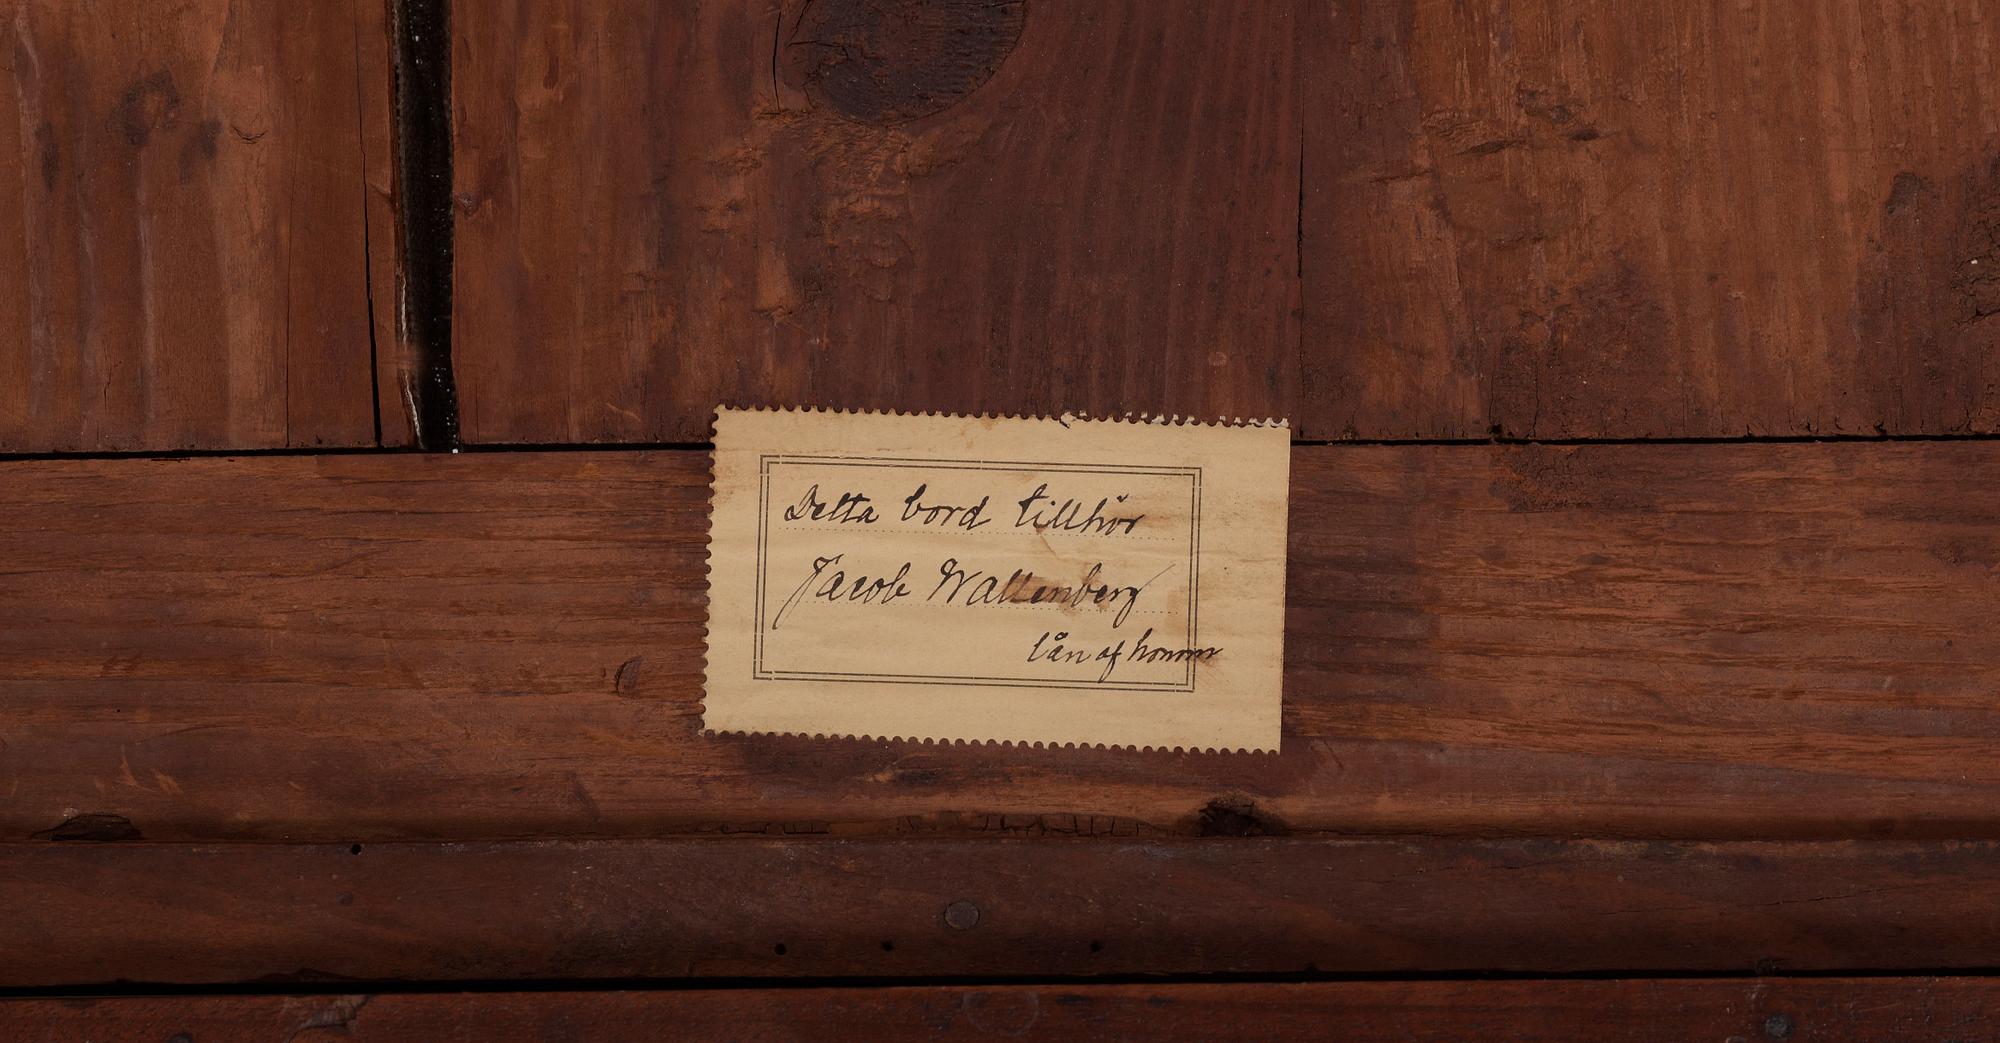 Detta bord tillhör
Jacob Wallenberg
lån af honom